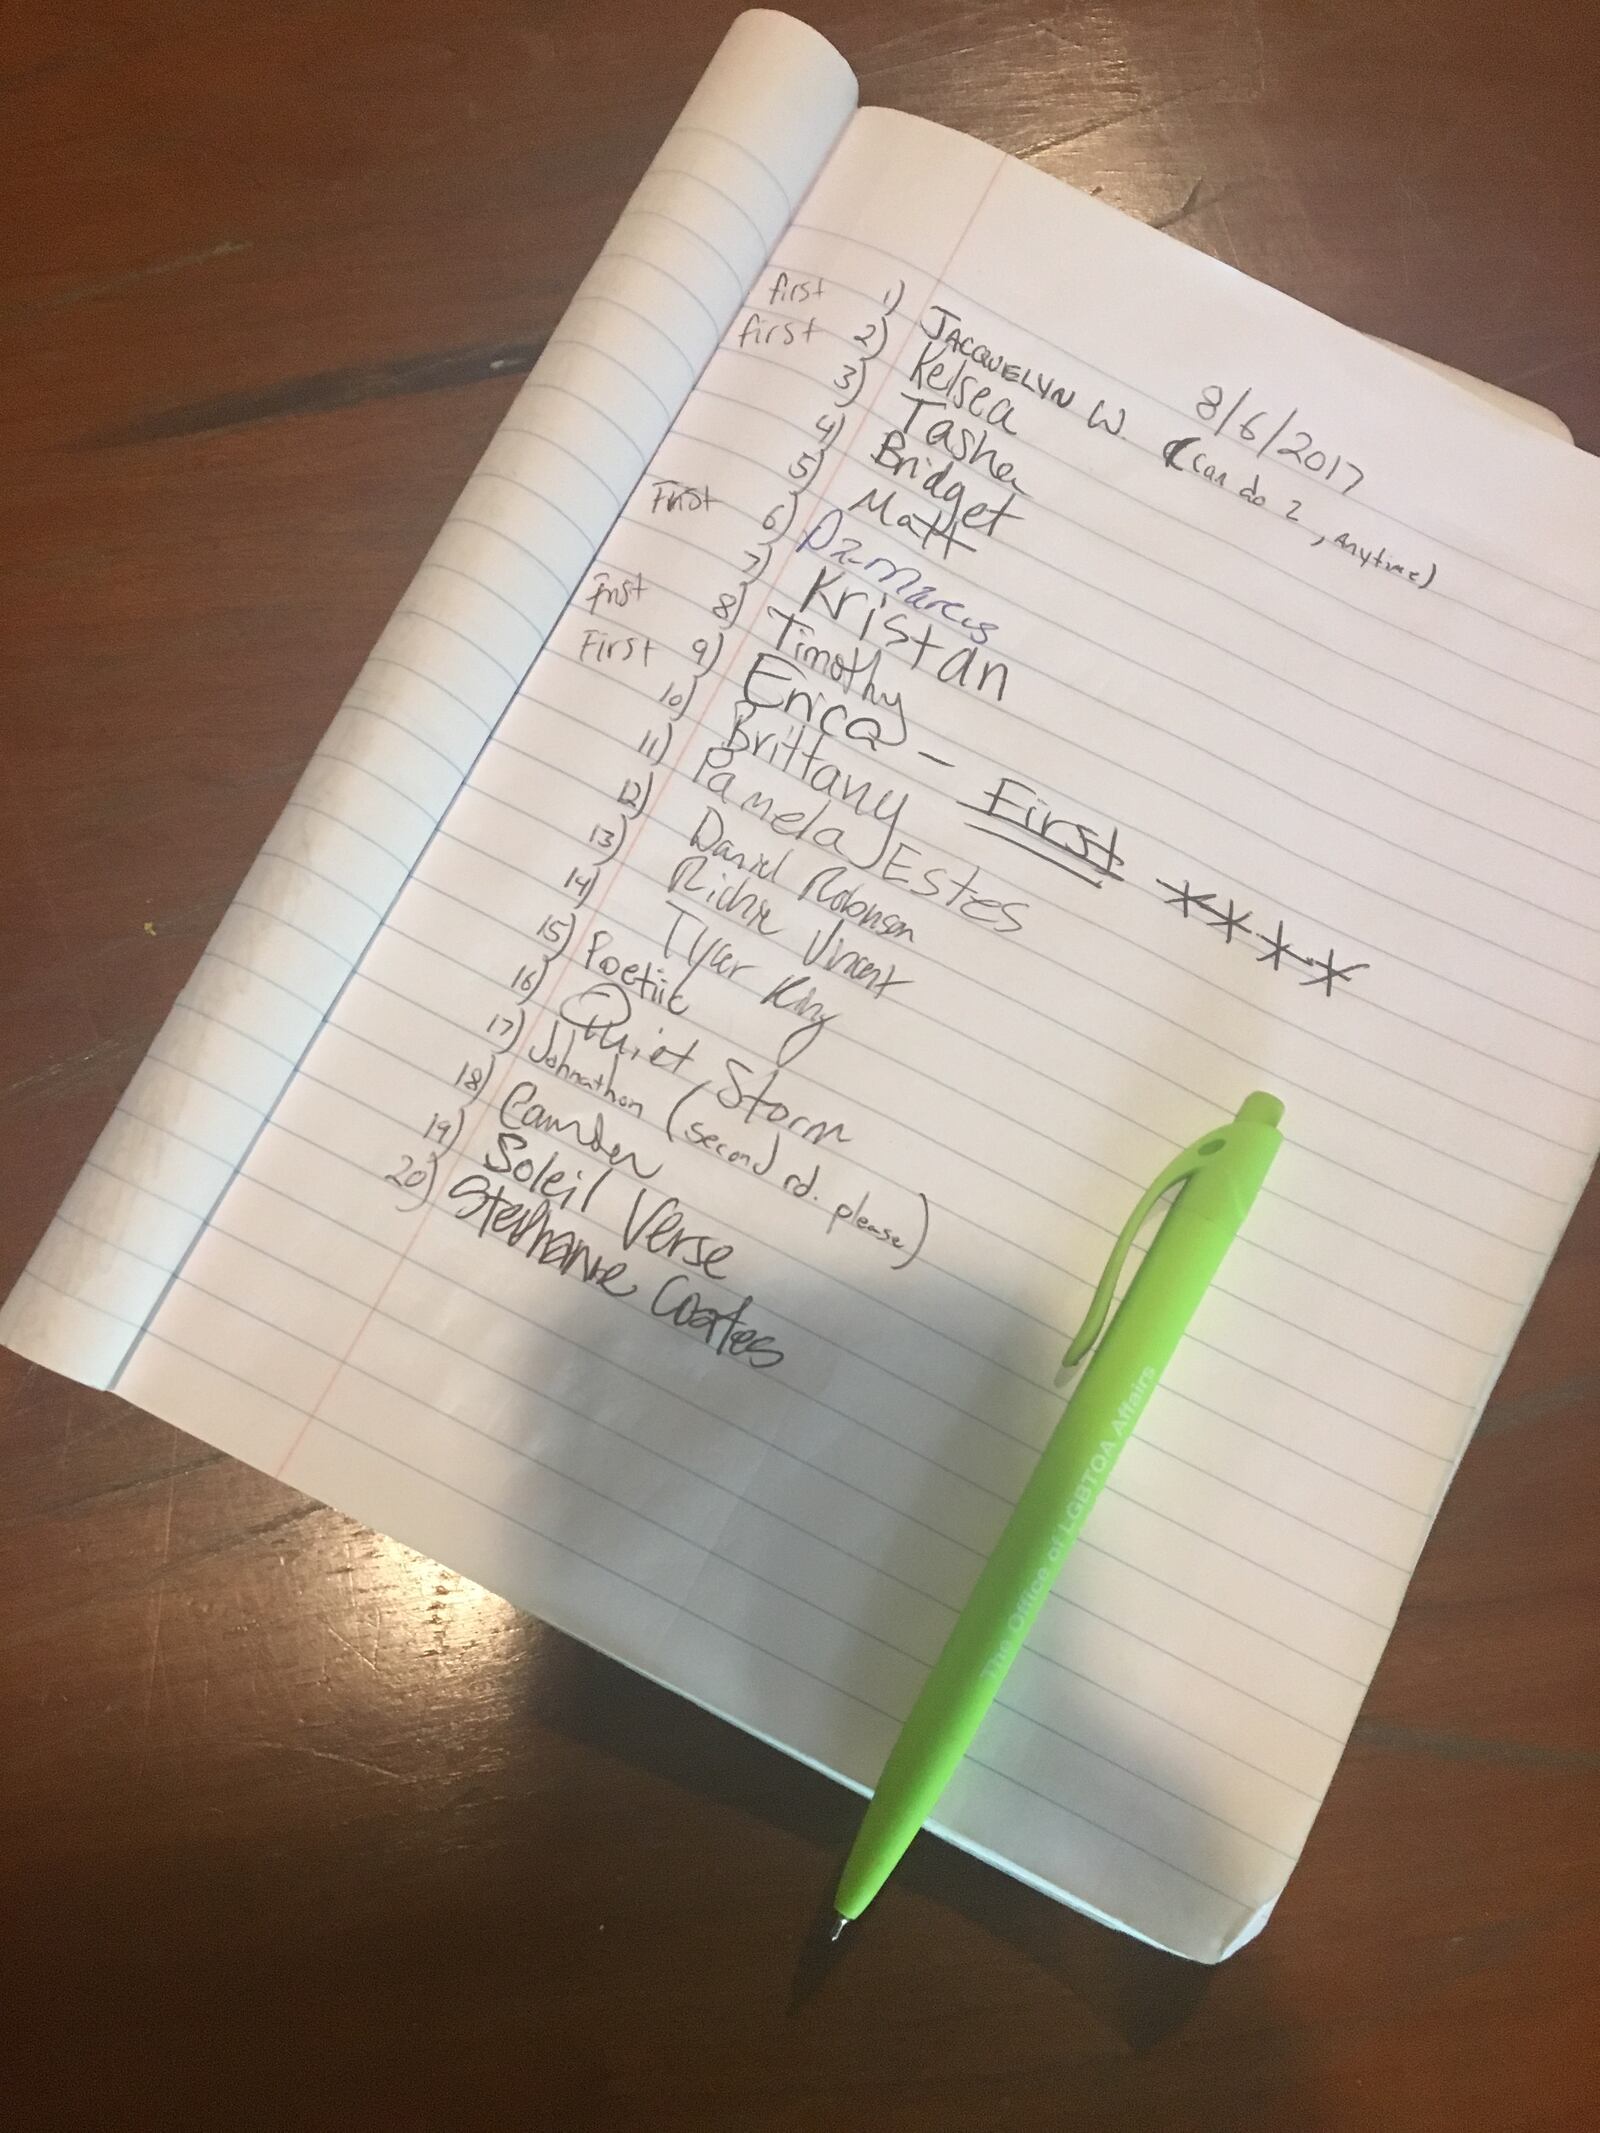 8/6/2017
first 1) JACQUELYN W. (can do 2, anytime)
first 2) Kelsea
3) Tasha
4) Bridget
5) Matt
First 6) DaMarcus
7) Kristan
First 8) Timothy
First 9) Erica - First ****
10) Brittany
11) Pamela Estes
12) Daniel Robinson
13) Richie Vincent
14) Tyler King
15) Poetiic
16) Quiet Storm
17) Johnathon (second rd. please)
18) Camden
19) Soleil Verse
20) Stephanie Coates
The Office of LGBTQA Affairs